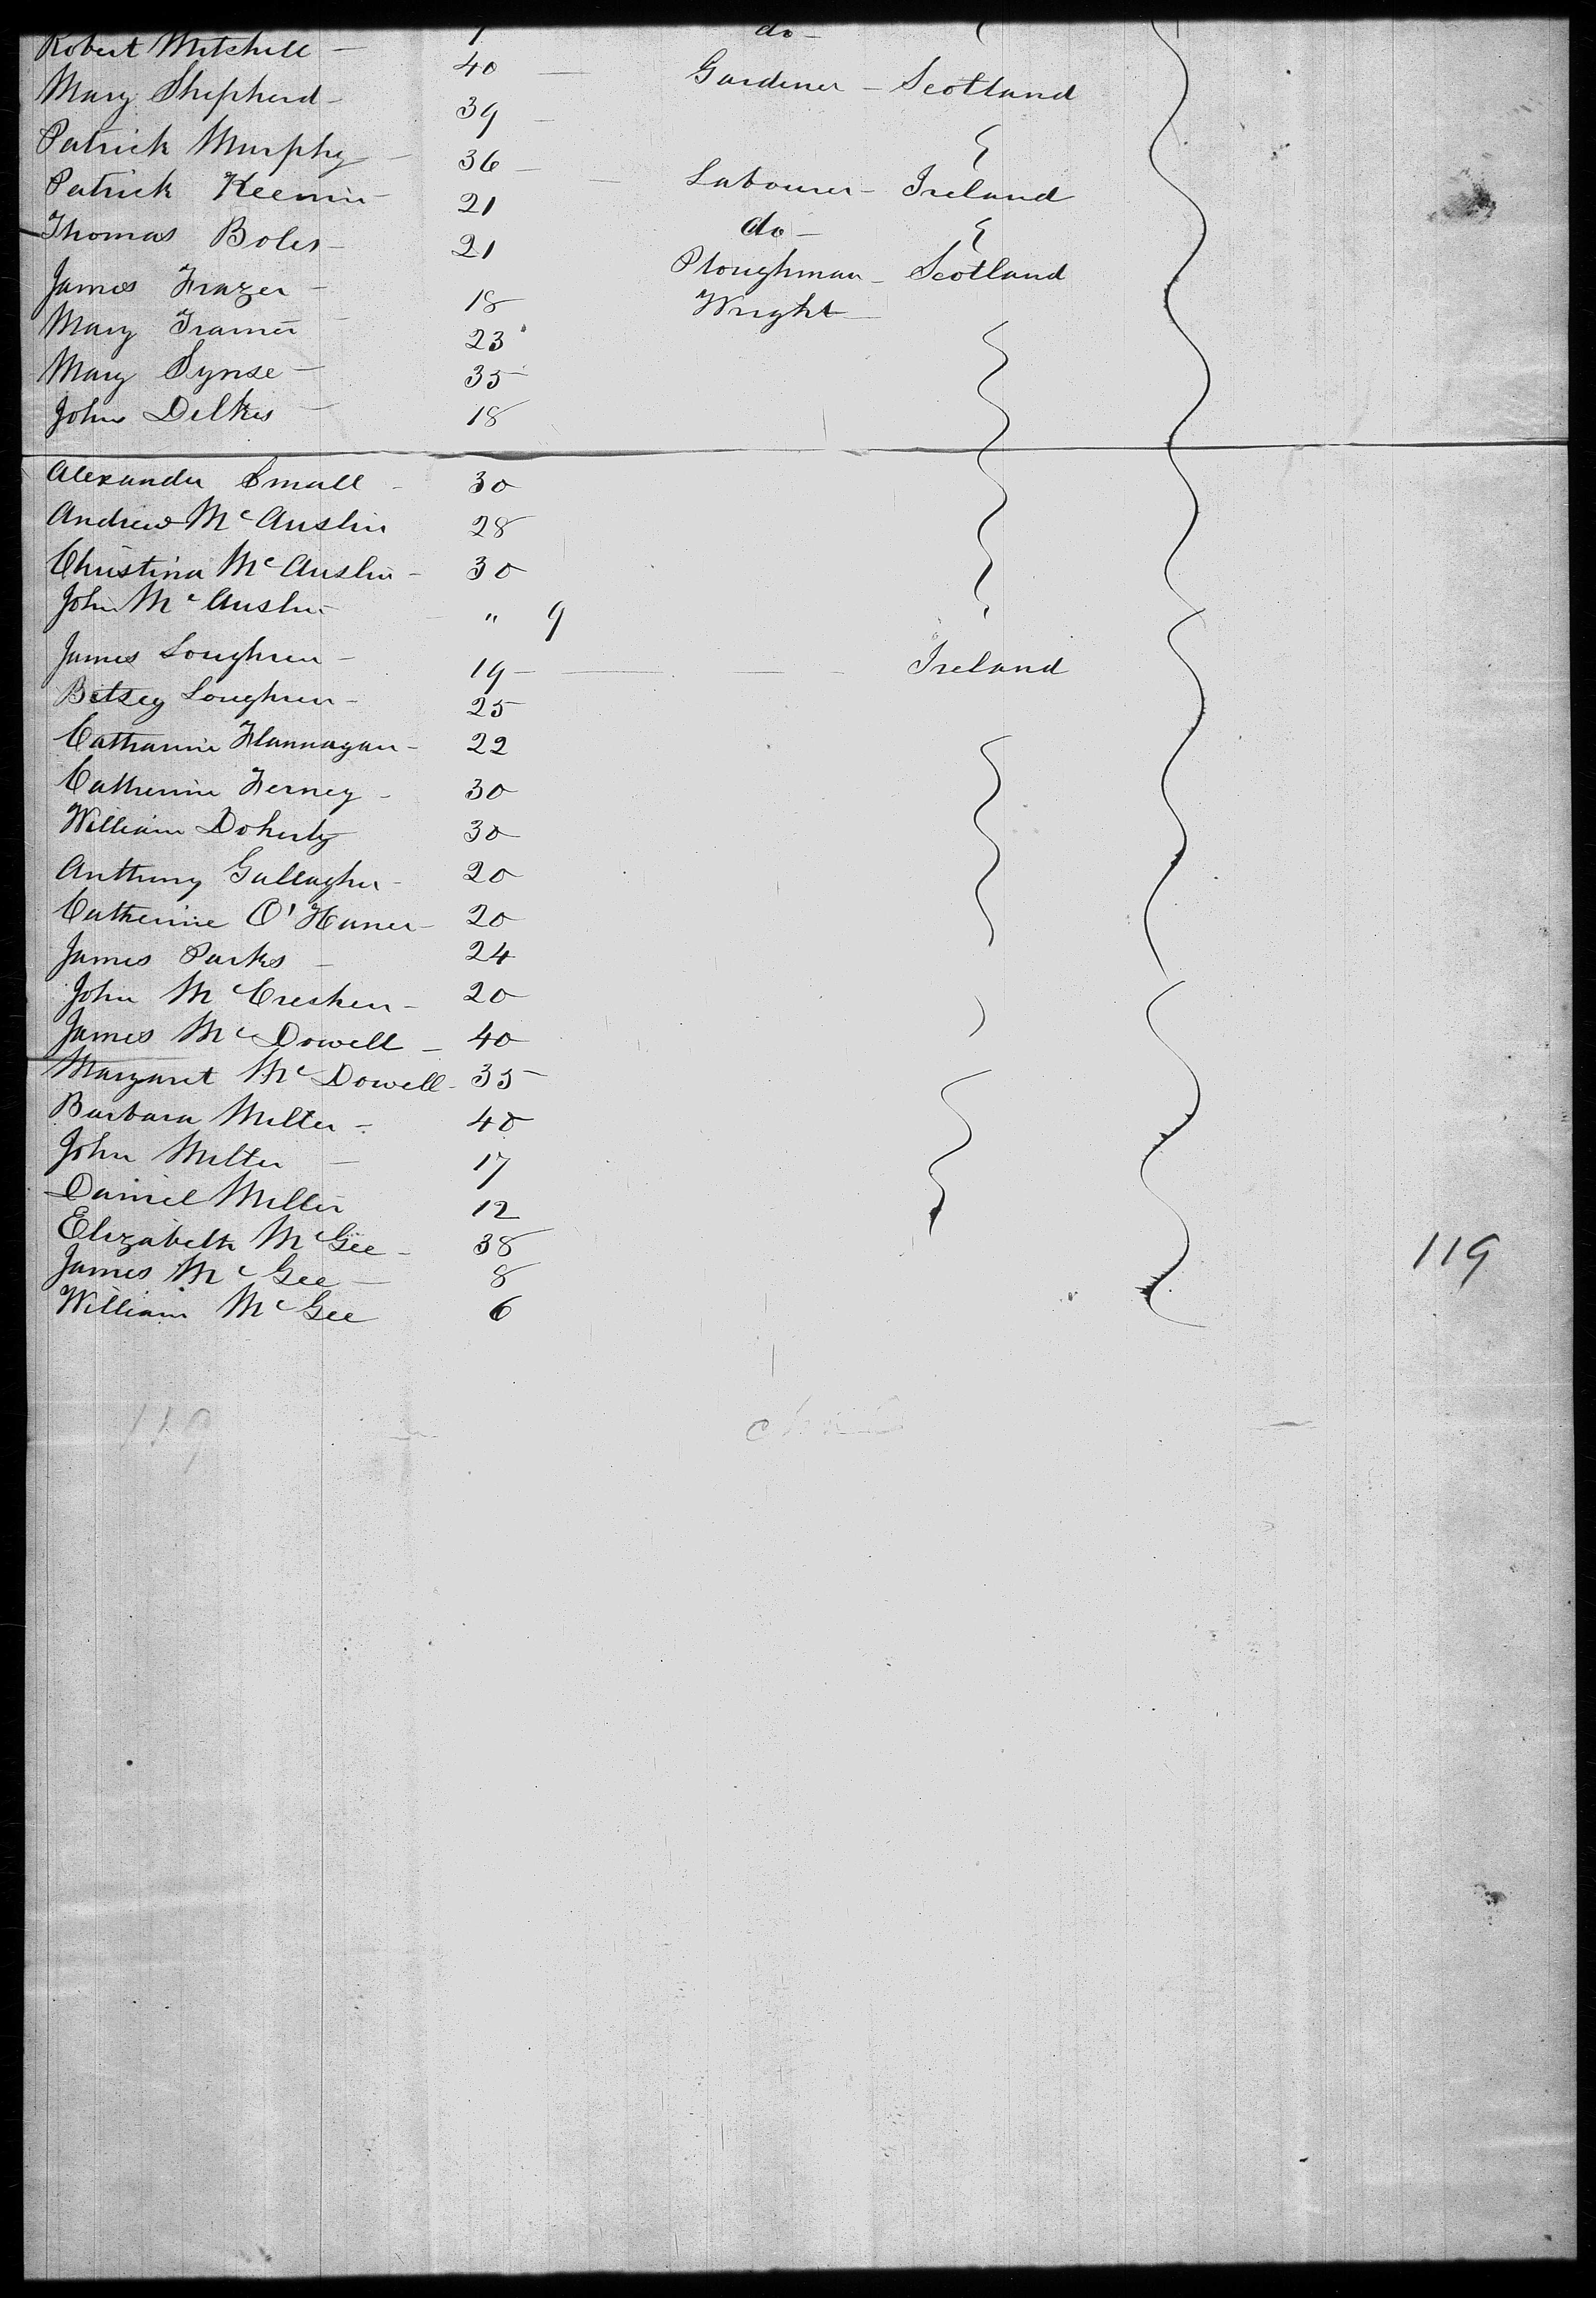 do -
Robert Mitchell - 40 - Gardener - Scotland
Mary Shepherd - 39 -
Patrick Murphy - 36 - Labourer - Ireland
Patrick Keenin - 21 do -
Thomas Boles - 21 Ploughman - Scotland
James Frazer - 18 Wright -
Mary Framer - 23
Mary Synse - 35
John Delkes - 18
Alexander Small - 30
Andrew McAuslin 28
Christina McAuslin - 30
John McAuslin - " 9
James Loughren - 19 - Ireland
Betsey Loughren - 25
Catharine Flannagan - 22
Catherine Ferney - 30
William Doherty 30
Anthony Gallagher - 20
Catherine O'Haner - 20
James Parks - 24
John McCresken - 20
James McDowell - 40
Margaret McDowell - 35
Barbara Miller - 40
John Miller - 17
Daniel Miller 12
Elizabeth McGee - 38
James McGee - 8
William McGee 6
119
119